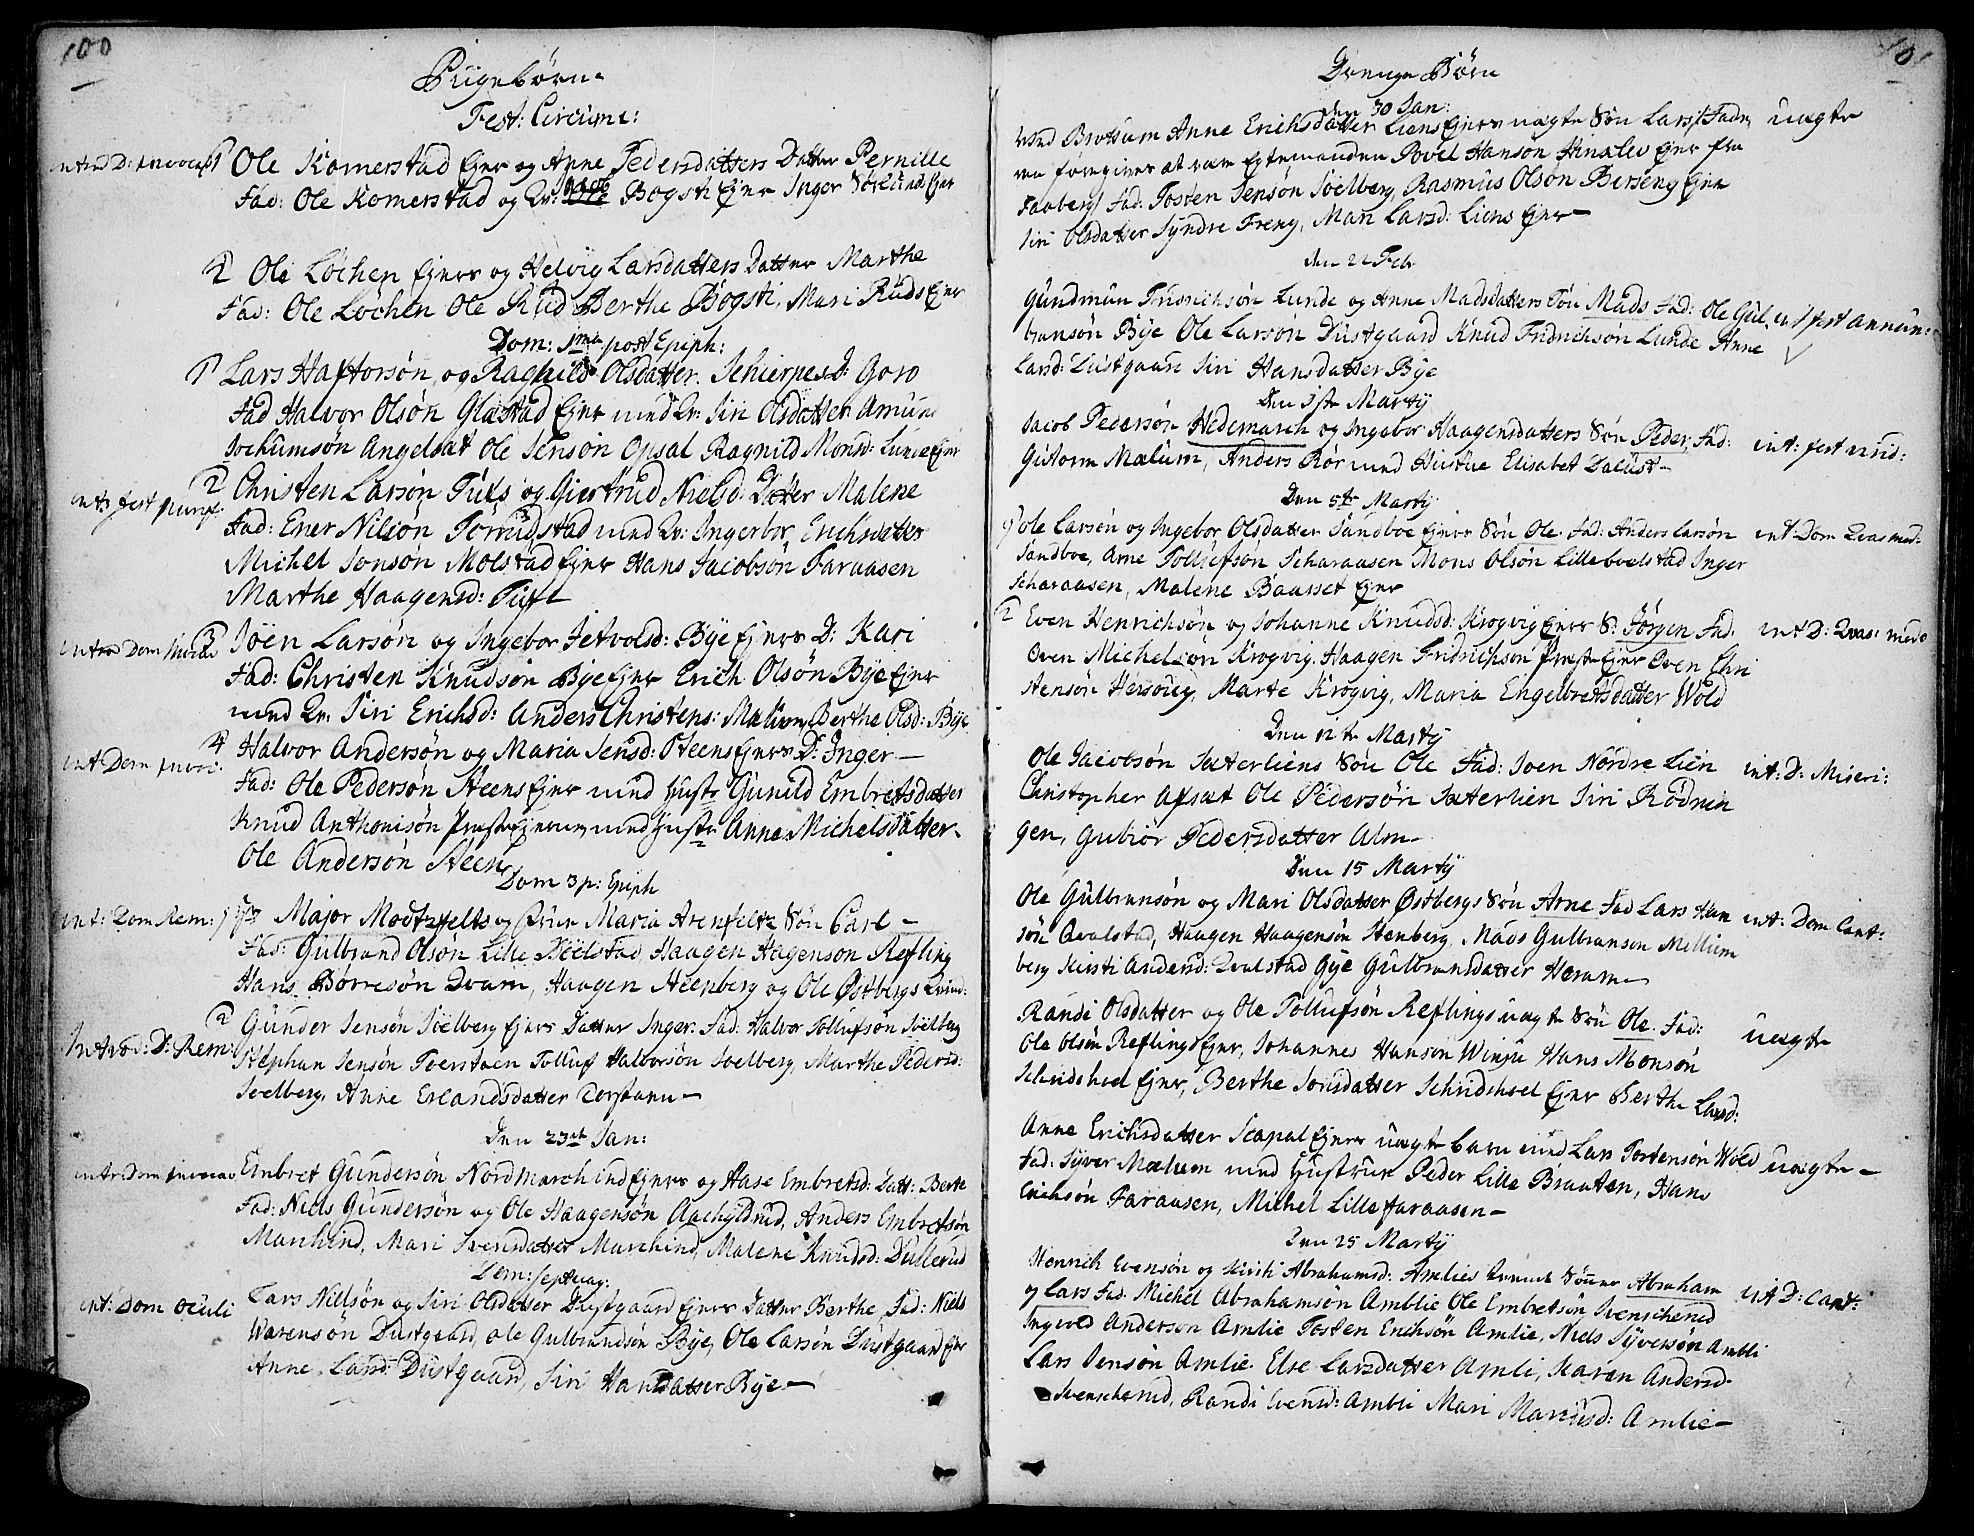 100
Piigebörn
Fest: Circumc:
1 Ole Komerstad Ejer og Anne Pedersdatters Datter Pernille
Fad: Ole Komerstad og Qv: Bogsti Ejer Inger Ejer
2 Ole Löchen Ejers og Helvig Larsdatters Datter Marthe
Fad: Ole Löchen Ole Rud Berthe Bogsti, Mari Ruds Ejer
Dom: 1ma post Epiph:
1 Lars Haftorsön og Ragnild Olsdatter D: Goro
Fad Halvor Olsön Glæstad Ejer med Qv: Siri Olsdatter Amund
Jochumsön Angelsat Ole Jensön Opsal Ragnild Monsd: Lunde Ejer
int: fest purif:
2 Christen Larsön Tufts og Giertrud Nielsd: Datter Malene
Fad: Ener Nilsön Torrudstad med Qv: Ingerbor Erichsdatter
Michel Jonsön Molstad Ejer Hans Jacobsön Faraasen
Marthe Haagensd: Tuft
3 Joen Larsön og Ingebor Jetvolsd: Bye Ejers D: Kari
Fad: Christen Knudsön Bye Ejer Erich Olsön Bye Ejer
med Qv: Siri Erichsd: Anders Christens: Mælum Berthe Olsd: Bye
4 Halvor Andersön og Maria Jensd: Steens Ejers D: Inger —
Fad: Ole Pedersön Steens Ejer med Hustr Gunild Embretsdatter
Knud Anthonisön med Hustr Anne Michelsdatter
Ole Andersön Steen
Dom 3 p: Epiph
int: Dom Rem:
1 Major Modtzfelts og Frue Maria Arenfeltz Sön Carl —
Fad: Gulbrand Olsön Lille Böelstad, Haagen Hagenson Refling
Hans Börresön Dvam, Haagen Steenberg og Ole Østbergs Qvind:
Introd: D: Rem:
2 Gunder Jensön Söelberg Ejers Datter Inger. Fad: Halvor Tollufsön Söelberg
Stephan Jensön Toerstaen Tolluf Halvorsön Soelberg, Marthe Pedersd:
Soelberg, Anne Erlandsdatter Torstaen —
Den 23de Jan:
Embret Gundersön Nordmarchind Ejers og Aase Embretsd: Datt: Berte
Fad: Niels Gundersön og Ole Haagensön Anders Embretsön
Marchind, Mari Svensdatter Marchind, Malene Knudsd: Dullerud
Dom: Septuag:
int: Dom oculi
Lars Nillsön og Siri Olsdatter Dustgaard Ejers Datter Berthe, Fad: Niels
Warensön Dustgaard, ole Gulbrandsön Bye, Ole Larsön Dustgaard Ejer
Anne Larsd: Dustgaard, Siri Hansdatter Bye —
101
Drenge Börn
den 30 Jan:
Ved Brottum Anne Erichsdatter Liens Ejers uægte Sön Lars / Fader
foregives at være Egtemanden Povel Hansön Ejer fra
Faaberg / Fad: Tosten Jensön Söelberg, Rasmus Olsön Berseng Ejer
Siri Olsdatter Syndre Freng, Mari Larsd: Liens Ejer —
uægte
den 22 Feb
Gundmun Fridrichsön Lunde og Anne Madsdatters Sön Mads Fad: Ole Gul
bransön Bye Ole Larsön Dustgaard Knud Fridrichsön Lunde Anne
Larsd: Dustgaard Siri Hansdatter Bye
int fest annun:
Den 1ste Martÿ
Jacob Pedersön Hedemarch og Ingebor Haagensdatters Sön Peder, Fad:
Guttorm Mælum, Anders Rör med Hustrue Elisabet Dalust —
int: fest vird:
Den 5te Martÿ
1 ole Larsön og Ingebor Olsdatter Sandboe Ejers Sön Ole. Fad: Anders Larsön
Sandboe, Arne Tollufson Scharaasen Mons Olsön Lilleboelstad Inger
Scharaasen, Malene Baasset Ejer
int. Dom Qvasimod:
2 Even Henrichsön og Johanne Knudsd: Krogvig Ejers S: Jörgen Fad:
Oven Michelsön Krogvig. Haagen Fridrichsön Præste Ejer Oven Chri
stensön Hersoug, Marte Krogvig, Maria Engelbretsdatter Wold
int D: Qvas: mod:
Den 12te Martÿ
Ole Jacobsön Sæterliens Sön Ole Fad: Joen Nordre Lien
Christopher Afsæt Ole Pedersön Sæterlien Siri Rödnin
gen, Gubior Pedersdatter Alm —
int: D: Miseri:
Den 15 Martÿ
Ole Gulbransön og Mari Olsdatter Østbergs Sön Arne Fad Lars Han
sön Qvalstad, Haagen Haagensön Stenberg, Mads Gulbranson Mellum
berg Kirsti Andersd: Qvalstad Gye Gulbransdatter Heram —
int: Dom Cant:
Randi Olsdatter og Ole Tollufsön Reflings uægte Sön Ole. Fad:
Ole Olsön Reflings Ejer, Johannes Hansön Winju Hans Monsön
Schridshoel Ejer, Berthe Jonsdatter Schridshoel Ejer Berthe Larsd:
uægte
Anne Erichsdatter Scapal Ejers uægte barn med Lars Tostensön Wold
Fad: Syver Mælum med Hustrue Peder Lille Braaten, Hans
Erichsön Faraasen, Michel Lille Faraasen —
uægte —
Den 25 Martÿ
Henrich Evensön og Kirsti Abrahamsd: Amlies Sönner Abraham
og Lars Fad. Michel Abrahamsön Amblie Ole Embretsön Svenscherud
Ingevol Anderson Amlie Tosten Erichsön Amlie, Niels Syversön Ambli
Lars Jensön Amlie. Else Larsdatter Amli, Karen Andersd.
Svenscherud, Randi Evensd: Ambli Mari Mariusd: Amlie —
int D: Cant: